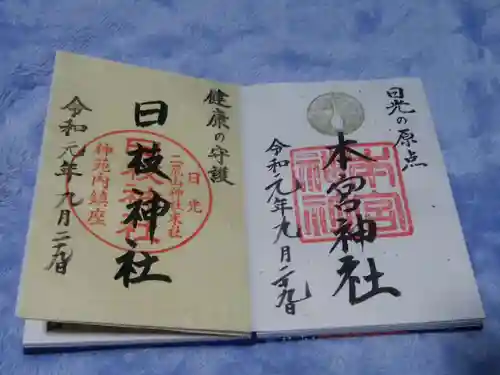 日光の原点
本宮神社
令和元年九月二十九日
本宮神社
健康の守護
日枝神社
日光
二荒山神社末社
神苑内鎮座
令和元年九月二十九日